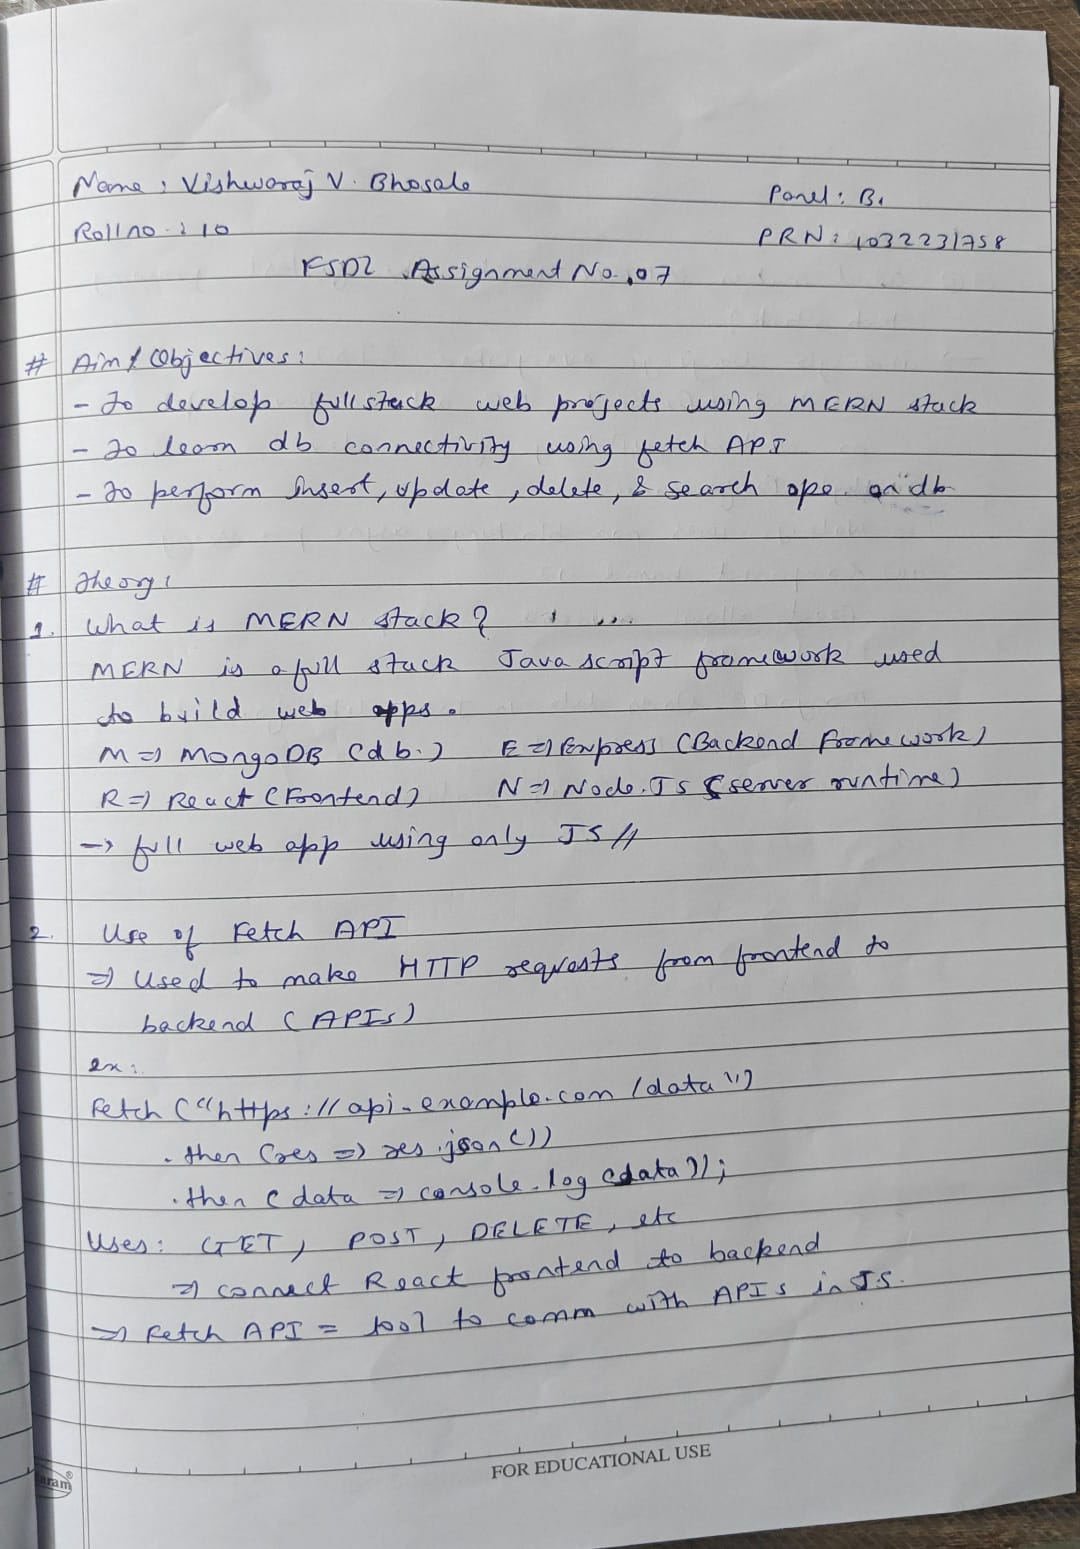 Name : Vishwaraj V. Bhosale
Panel : B1
Roll no : 10
PRN : 1032231758
FSDL Assignment No. 07
# Aim & Objectives :
- To develop full stack web projects using MERN stack
- To learn db connectivity using fetch API
- To perform insert, update, delete, & search ope. on db
# Theory :
1. What is MERN stack?
MERN is a full stack Java script framework used
to build web apps.
M => MongoDB (db.) E => Express (Backend Framework)
R => React (Frontend) N => Node.JS (server runtime)
-> full web app using only JS //
2. Use of Fetch API
=> Used to make HTTP requests from frontend to
backend (APIs)
ex :
Fetch ("https://api.example.com/data")
.then (res => res.json())
.then (data => console.log(data));
Uses : GET, POST, DELETE, etc
=> connect React frontend to backend
=> Fetch API = tool to comm with APIs in JS.
FOR EDUCATIONAL USE